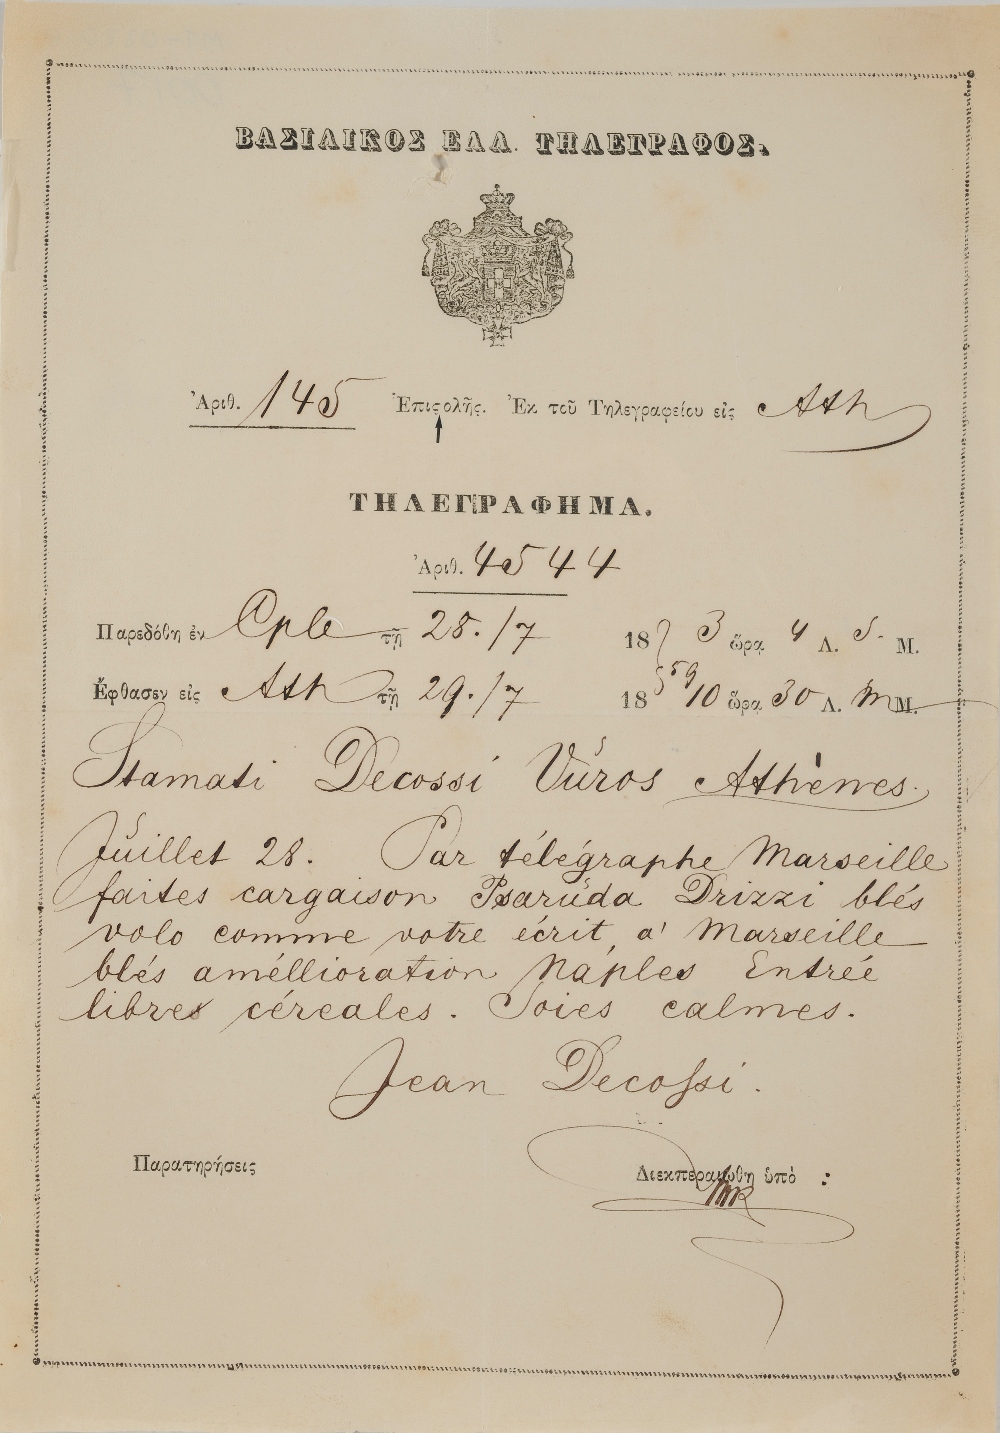 ΒΑΣΙΛΙΚΟΣ ΕΛΛ. ΤΗΛΕΓΡΑΦΟΣ.
Ἀριθ. 145 Ἐπιςολῆς. Ἐκ τοῦ Τηλεγραφείου εἰς Ath
ΤΗΛΕΓΡΑΦΗΜΑ.
Ἀριθ. 4544
Παρεδόθη ἐν Cple τῇ 28./7 18 3 ὥρᾳ 4 Λ. S. Μ.
Ἔφθασεν εἰς Ath τῇ 29./7 1859 10 ὥρᾳ 30 Λ. m Μ.
Stamati Decossi Vŭros Athènes.
Jŭillet 28. Par télégraphe Marseille
faites cargaison Psarŭda Drizzi blés
volo comme votre écrit, a' Marseille
blés améllioration Naples Entrée
libres céreales. Soies calmes.
Jean Decossi.
Παρατηρήσεις
Διεκπεραιώθη ὑπὸ :